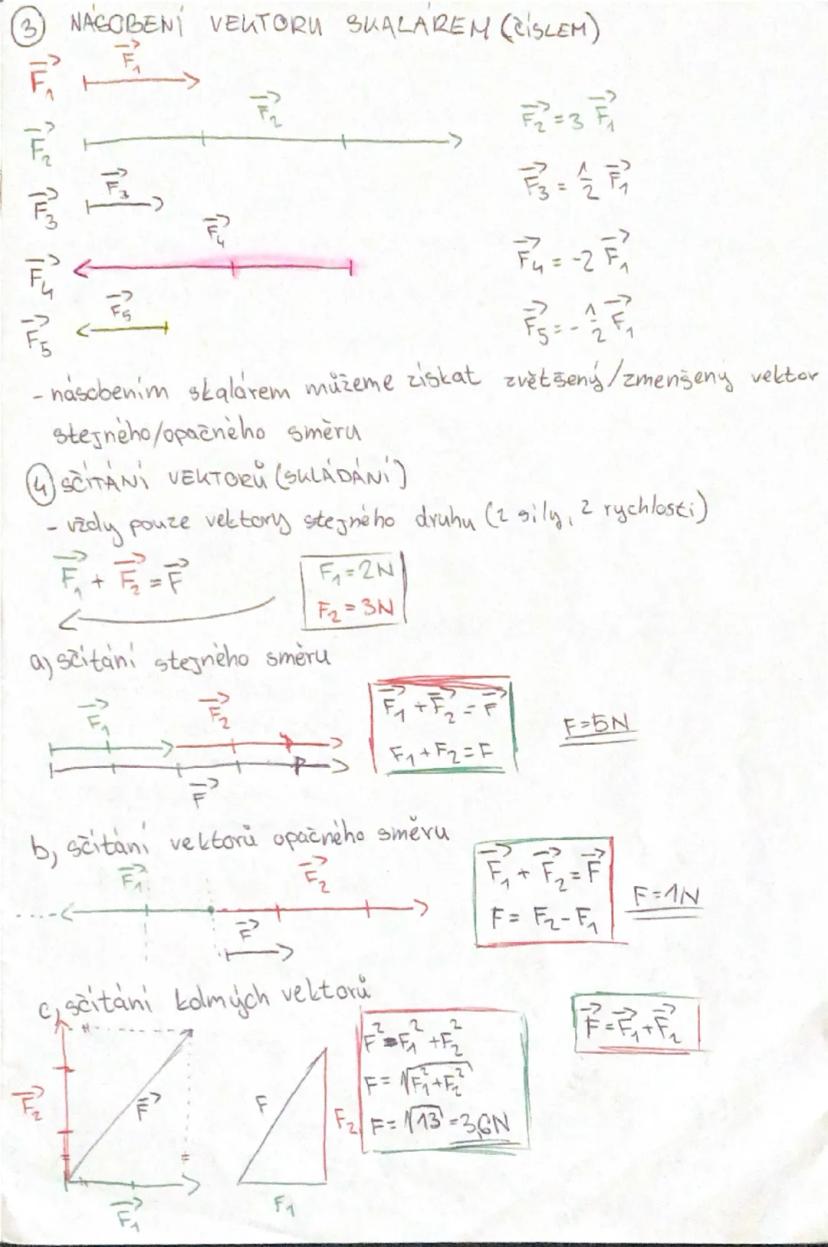 ③ NÁSOBENÍ VEKTORU SKALÁREM (ČÍSLEM)
F⃗₁ F⃗₁
F⃗₂ F⃗₂ F⃗₂ = 3 F⃗₁
F⃗₃ F⃗₃ F⃗₃ = 1/2 F⃗₁
F⃗₄ F⃗₄ F⃗₄ = -2 F⃗₁
F⃗₅ F⃗₅ F⃗₅ = - 1/2 F⃗₁
- násobením skalárem můžeme získat zvětšený/zmenšený vektor
stejného/opačného směru
④ SČÍTÁNÍ VEKTORŮ (SKLÁDÁNÍ)
- vždy pouze vektory stejného druhu (2 síly, 2 rychlosti)
F⃗₁ + F⃗₂ = F⃗
F₁ = 2N
F₂ = 3N
a) sčítání stejného směru
F⃗₁ F⃗₂
F⃗
F⃗₁ + F⃗₂ = F⃗
F₁ + F₂ = F
F = 5N
b) sčítání vektorů opačného směru
F⃗₁ F⃗₂
F⃗
F⃗₁ + F⃗₂ = F⃗
F = F₂ - F₁
F = 1N
c) sčítání kolmých vektorů
F⃗₂ F⃗
F⃗₁
F F₂
F₁
F² = F₁² + F₂²
F = √(F₁² + F₂²)
F = √13 = 3,6N
F⃗ = F⃗₁ + F⃗₂